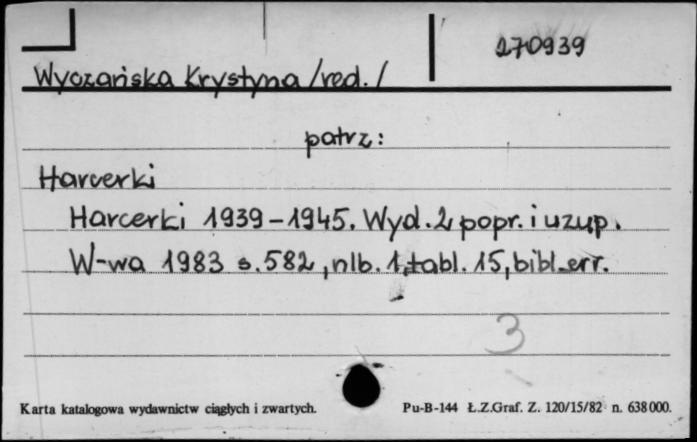 270939
Wyczańska Krystyna /red./
patrz:
Harcerki
Harcerki 1939-1945. Wyd. 2 popr. i uzup.
W-wa 1983 s. 582, nlb. 1, tabl. 15, bibl. err.
3
Karta katalogowa wydawnictw ciągłych i zwartych. Pu-B-144 Ł.Z.Graf. Z. 120/15/82 n. 638000.